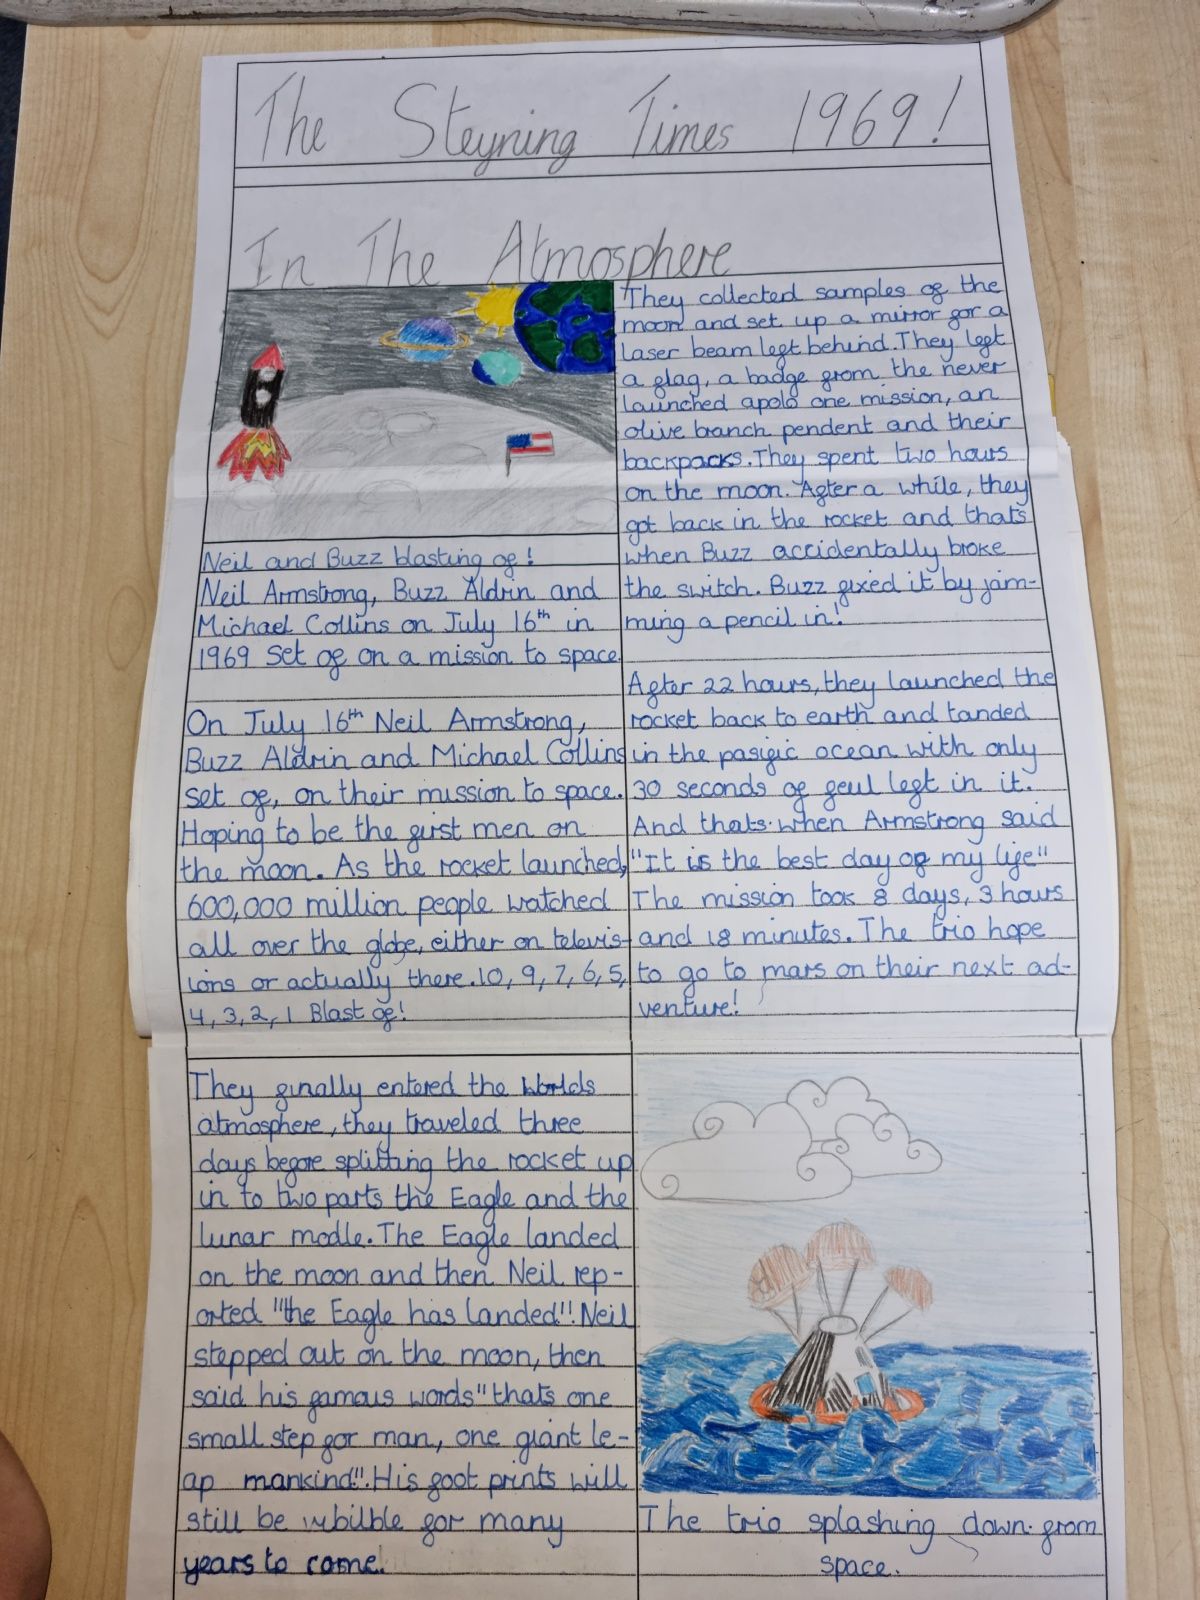 The Steyning Times 1969!
In The Atmosphere
Neil and Buzz blasting of!
Neil Armstrong, Buzz Aldrin and
Michael Collins on July 16th in
1969 set of on a mission to space.
On July 16th Neil Armstrong,
Buzz Aldrin and Michael Collins
set of, on their mission to space.
Hoping to be the first men on
the moon. As the rocket launched,
600,000 million people watched
all over the globe, either on televis-
ions or actually there. 10, 9, 7, 6, 5,
4, 3, 2, 1 Blast of!
They finally entered the worlds
atmosphere, they traveled three
days before splitting the rocket up
in to two parts the Eagle and the
lunar modle. The Eagle landed
on the moon and then Neil rep-
orted "the Eagle has landed"! Neil
stepped out on the moon, then
said his famous words "thats one
small step for man, one giant le-
ap mankind". His foot prints will
still be for many
years to come.
They collected samples of the
moon and set up a mirror for a
laser beam left behind. They left
a flag, a badge from the never
launched apolo one mission, an
olive branch pendent and their
backpacks. They spent two hours
on the moon. After a while, they
got back in the rocket and thats
when Buzz accidentally broke
the switch. Buzz fixed it by jam-
ming a pencil in!
After 22 hours, they launched the
rocket back to earth and landed
in the pasific ocean with only
30 seconds of feul left in it.
And thats when Armstrong said
"It is the best day of my life"
The mission took 8 days, 3 hours
and 18 minutes. The trio hope
to go to mars on their next ad-
venture!
The trio splashing down from
space.